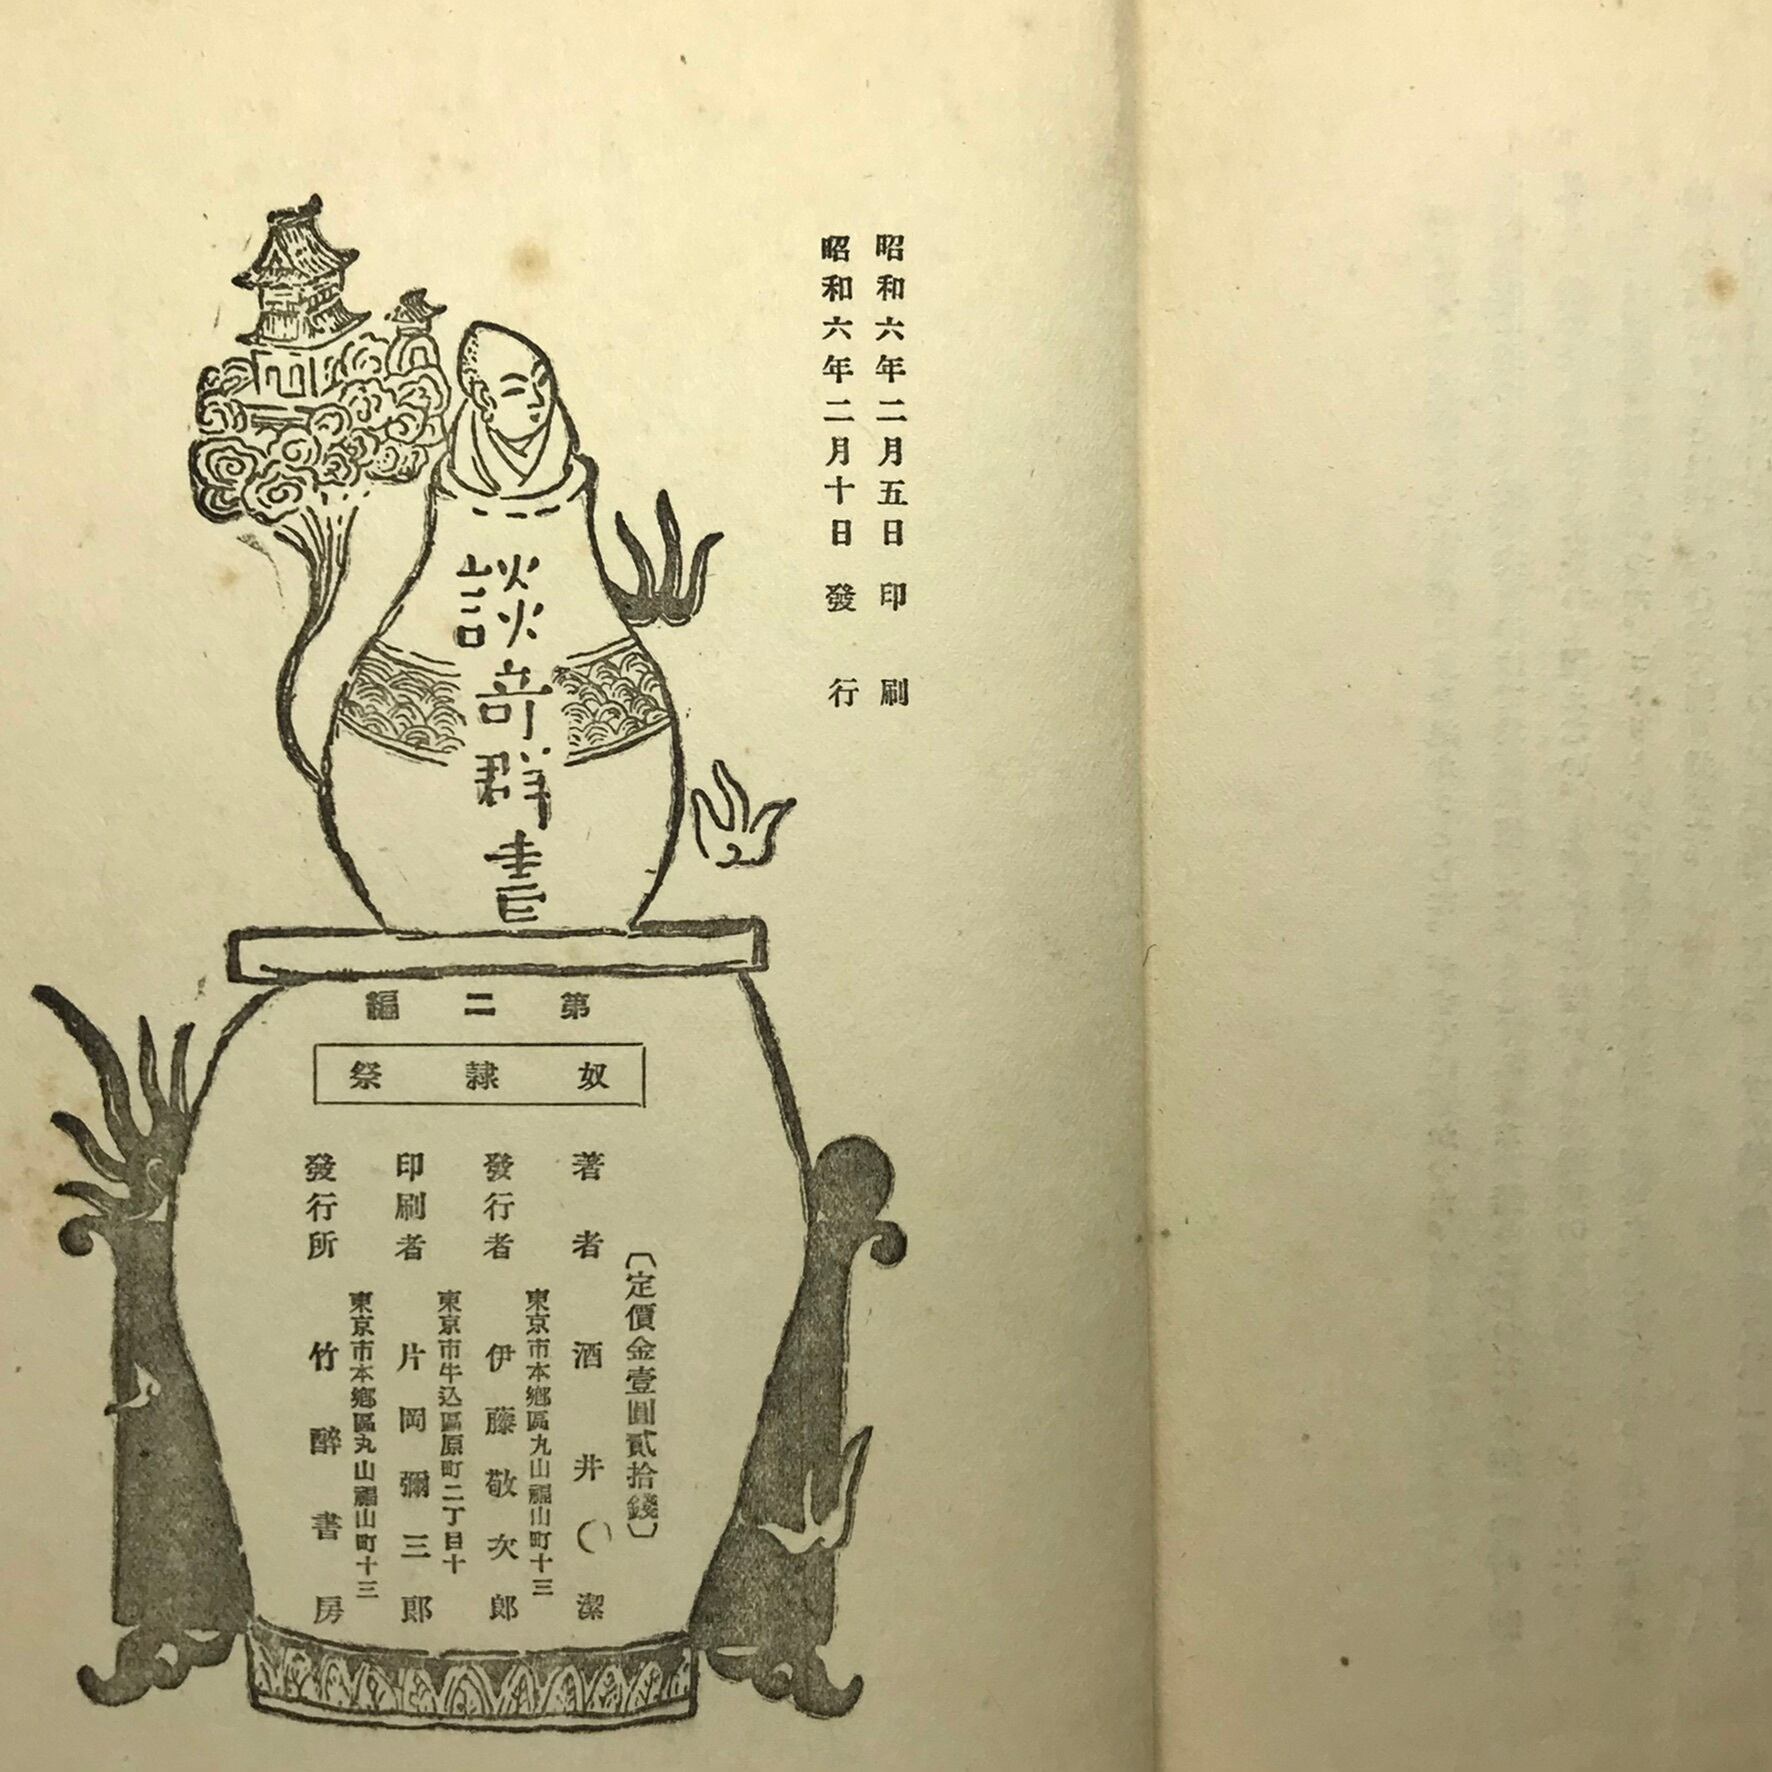 昭和六年二月五日 印刷
昭和六年二月十日 發行
談奇群書
第二編
奴隷祭
〔定價金壹圓貳拾錢〕
著者 酒井潔
東京市本鄕區丸山福山町十三
發行者 伊藤敬次郎
東京市牛込區原町二丁目十
印刷者 片岡彌三郎
東京市本鄕區丸山福山町十三
發行所 竹醉書房